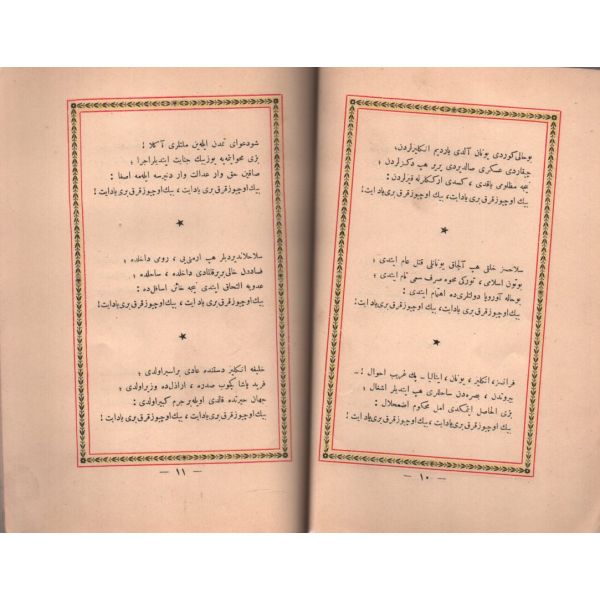 بو حالی کوردی یونان آلدی یاردیم انکلیزلردن ،
چیقاردی عسکری صالدیردی یر یر هپ دکزلردن ؛
نیجه مظلومی یاقدی ، کسدی ارککلرله قیزلردن :
بیك اوچیوز قرق بری یاد ایت ، بیك اوچیوز قرق بری یاد ایت !
★
سلاحسز خلقی هپ آلچاق یونانلی قتل عام ایتدی ؛
بوتون اسلامی ، تورکی محوه صرف سعی تام ایتدی ؛
بو حاله آوروپا دولتلری ده اهتمام ایتدی :
بیك اوچیوز قرق بری یاد ایت ، بیك اوچیوز قرق بری یاد ایت !
★
فرانسز ، انکلیز ، یونان ، ایتالیا ـ پك غریب احوال ! ـ
بیروتدن ، بصره دن ساحللری هپ ایتدیلر اشغال ؛
بزی الحاصل ایتمکدی امل محکوم اضمحلال :
بیك اوچیوز قرق بری یاد ایت ، بیك اوچیوز قرق بری یاد ایت !
— ١٠ —
شو دعوای تمدن ایله ین ملتلری آکلا !
بزی محو ایتمه یه یوز بیك جنایت ایتدیلر اجرا ؛
صاقین حق وار عدالت وار دنیرسه ایله مه اصغا :
بیك اوچیوز قرق بری یاد ایت ، بیك اوچیوز قرق بری یاد ایت !
★
سلاحلاندیردیلر هپ ارمنی یی ، رومی داخلده ؛
فساددن خالی بر قالمادی داخلده ، ساحلده ؛
عدویه التحاق ایتدی نیجه خائن اسافلده :
بیك اوچیوز قرق بری یاد ایت ، بیك اوچیوز قرق بری یاد ایت !
★
خلیفه انکلیز دستنده عادی بر اسیر اولدی ؛
فرید پاشا کچوب صدره ، اراذل ده وزیر اولدی ؛
جهان حیرتده قالدی اویله بر جرم کبیر اولدی :
بیك اوچیوز قرق بری یاد ایت ، بیك اوچیوز قرق بری یاد ایت !
— ١١ —